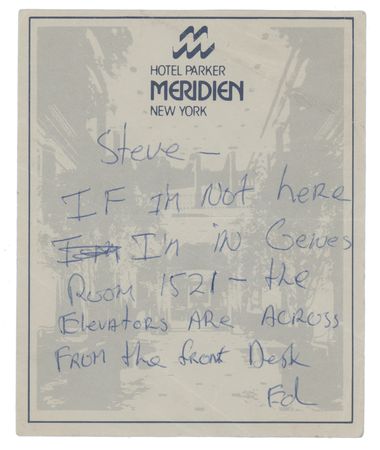 HOTEL PARKER
MERIDIEN
NEW YORK
Steve —
IF I'm Not here
I'm in Genes
Room 1521 – the
Elevators Are Across
From the front Desk
Ed